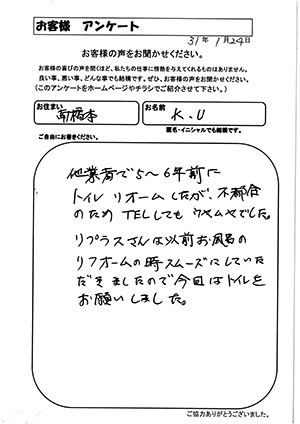 お客様 アンケート
31年 1月24日
お客様の声をお聞かせください。
お客様の喜びの声を聞くほど、私たちの仕事に情熱を与えてくれるものはありません。
良い事、悪い事、どんな事でも結構です。ぜひ、お客様の声をお聞かせください。
(このアンケートをホームページやチラシでご紹介させて下さい。)
お住まい
お名前
南橋本
K.U
匿名・イニシャルでも結構です。
ご自由にお書きください。
他業者で5～6年前に
トイレリオームしたが、不都合
のためTELしてもウヤムヤでした。
リプラスさんは以前お風呂の
リフォームの時スムーズにしていた
だきましたので今回はトイレを
お願いしました。
ご協力ありがとうございました。